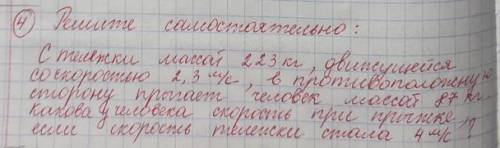 ④ Решите самостоятельно:
С тележки массой 223 кг, движущейся
со скоростью 2,3 м/с, в противоположную
сторону прыгает человек массой 87 кг.
какова у человека скорость при прыжке,
если скорость тележки стала 4 м/с?